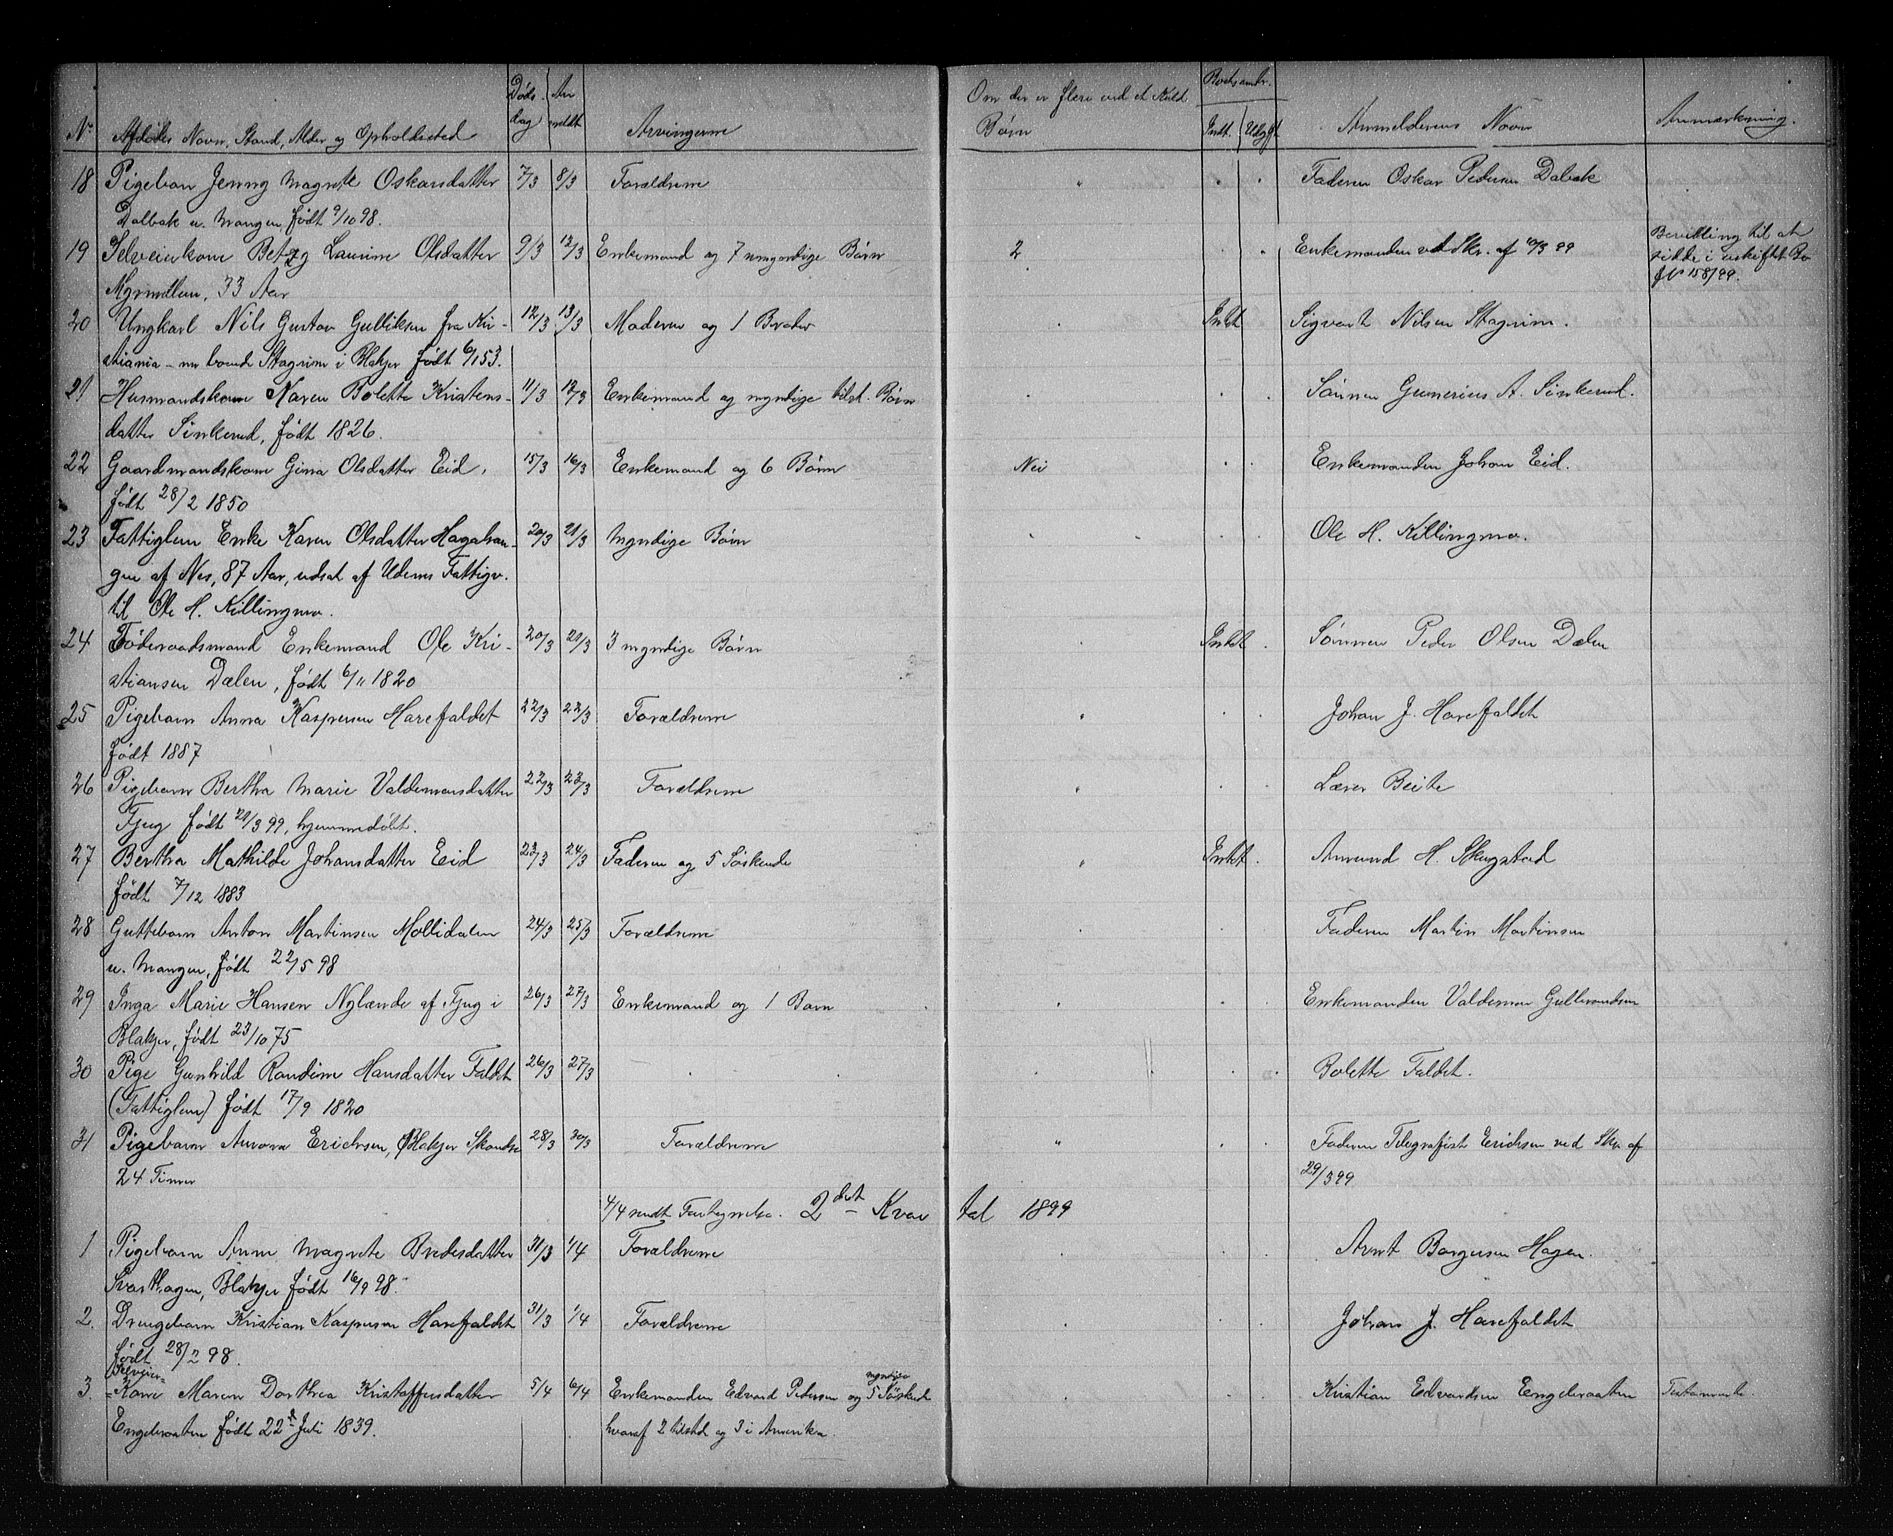 No Afdødes Navn, Stand, Alder og Opholdssted | Døds- dag | An- meldt | Arvingerne | Om der er flere end et Kuld Børn | Bodsamtr. Indt. Udgift | Anmelderens Navn | Anmærkning.
18 Pigebarn Jenny Magrete Oskarsdatter 7/3 8/3 Forældrene " Faderen Oskar Pedersen Dalbak
Dalbak u. Mangen, født 9/10 98.
19 Selveierkone Betzy Laurine Olsdatter 9/3 12/3 Enkemand og 7 umyndige Børn 2 Enkemanden ved Skr. af 10/3 99 Bevilling til at
sidde i uskiftet Bo
158/99.
33 Aar
20 Ungkarl Nils Gustav Gulliksen fra Kri- 12/3 13/3 Moderen og 1 Broder Indt Sigvart Nilsen Stagrim.
stiania - nu boende Stagrim i Blakjer født 6/1 53.
21 Husmandskone Karen Bolette Kristens- 11/3 12/3 Enkemand og myndige tilst. Børn Sønnen Gunerius A. Sinkerud.
datter Sinkerud, født 1826.
22 Gaardmandskone Gina Olsdatter Eid, 15/3 16/3 Enkemand og 6 Børn Nei Enkemanden Johan Eid.
født 28/2 1850
23 Fattiglem Enke Karen Olsdatter Hagabran- 20/3 21/3 Myndige Børn Ole H. Killingmo.
gen af Nes, 87 Aar, udsat af Udenes Fattigv.
til Ole H. Killingmo.
24 Føderaadsmand Enkemand Ole Kri- 20/3 21/3 3 myndige Børn Indt. Sønnen Peder Olsen Dælen
stiansen Dælen, født 6/11 1820
25 Pigebarn Anna Kaspersen Harefaldet 22/3 22/3 Forældrene " Johan J. Harefaldet
født 1887
26 Pigebarn Bertha Marie Valdemarsdatter 22/3 23/3 Forældrene " Lærer Beite
Tjug født 21/3 99, hjemmedøbt.
27 Bertha Mathilde Johansdatter Eid 23/3 24/3 Faderen og 5 Søskende " Indt. Amund H. Skugstad
født 7/12 1883
28 Guttebarn Anton Martinsen Mollidalen 24/3 25/3 Forældrene Faderen Martin Martinsen
u. Mangen, født 22/5 98
29 Inga Marie Hansen Nylænde af Tjug i 26/3 27/3 Enkemand og 1 Barn Enkemanden Valdemar Gulbrandsen
Blakjer, født 23/10 75
30 Pige Gunhild Randine Hansdatter Faldet 26/3 27/3 Bolette Faldet.
(Fattiglem) født 17/9 1820
31 Pigebarn Aurora Erichsen, Blakjer Skandse 28/3 30/3 Forældrene " Faderen Telegrafist Erichsen ved Skr. af
24 Timer 29/3 99
4/4 sendt Fortegnelse. 2det Kvartal 1899
1 Pigebarn Anne Magrete Bredesdatter 31/3 1/4 Forældrene Arnt Borgersen Hagen.
Svarthagen, Blakjer født 16/9 98.
2. Drengebarn Kristian Kaspersen Harefaldet 31/3 1/4 Forældrene Johan J. Harefaldet
født 28/2 98.
Selveier- myndige
3. -Kone Maren Dorthea Kristoffersdatter 5/4 6/4 Enkemanden Edvard Pedersen og 5 Søskende Kristian Edvardsen Engeraaten Testamente
Engeraaten født 22d Juli 1839. hvoraf 2 tilsted og 3 i Amerika.